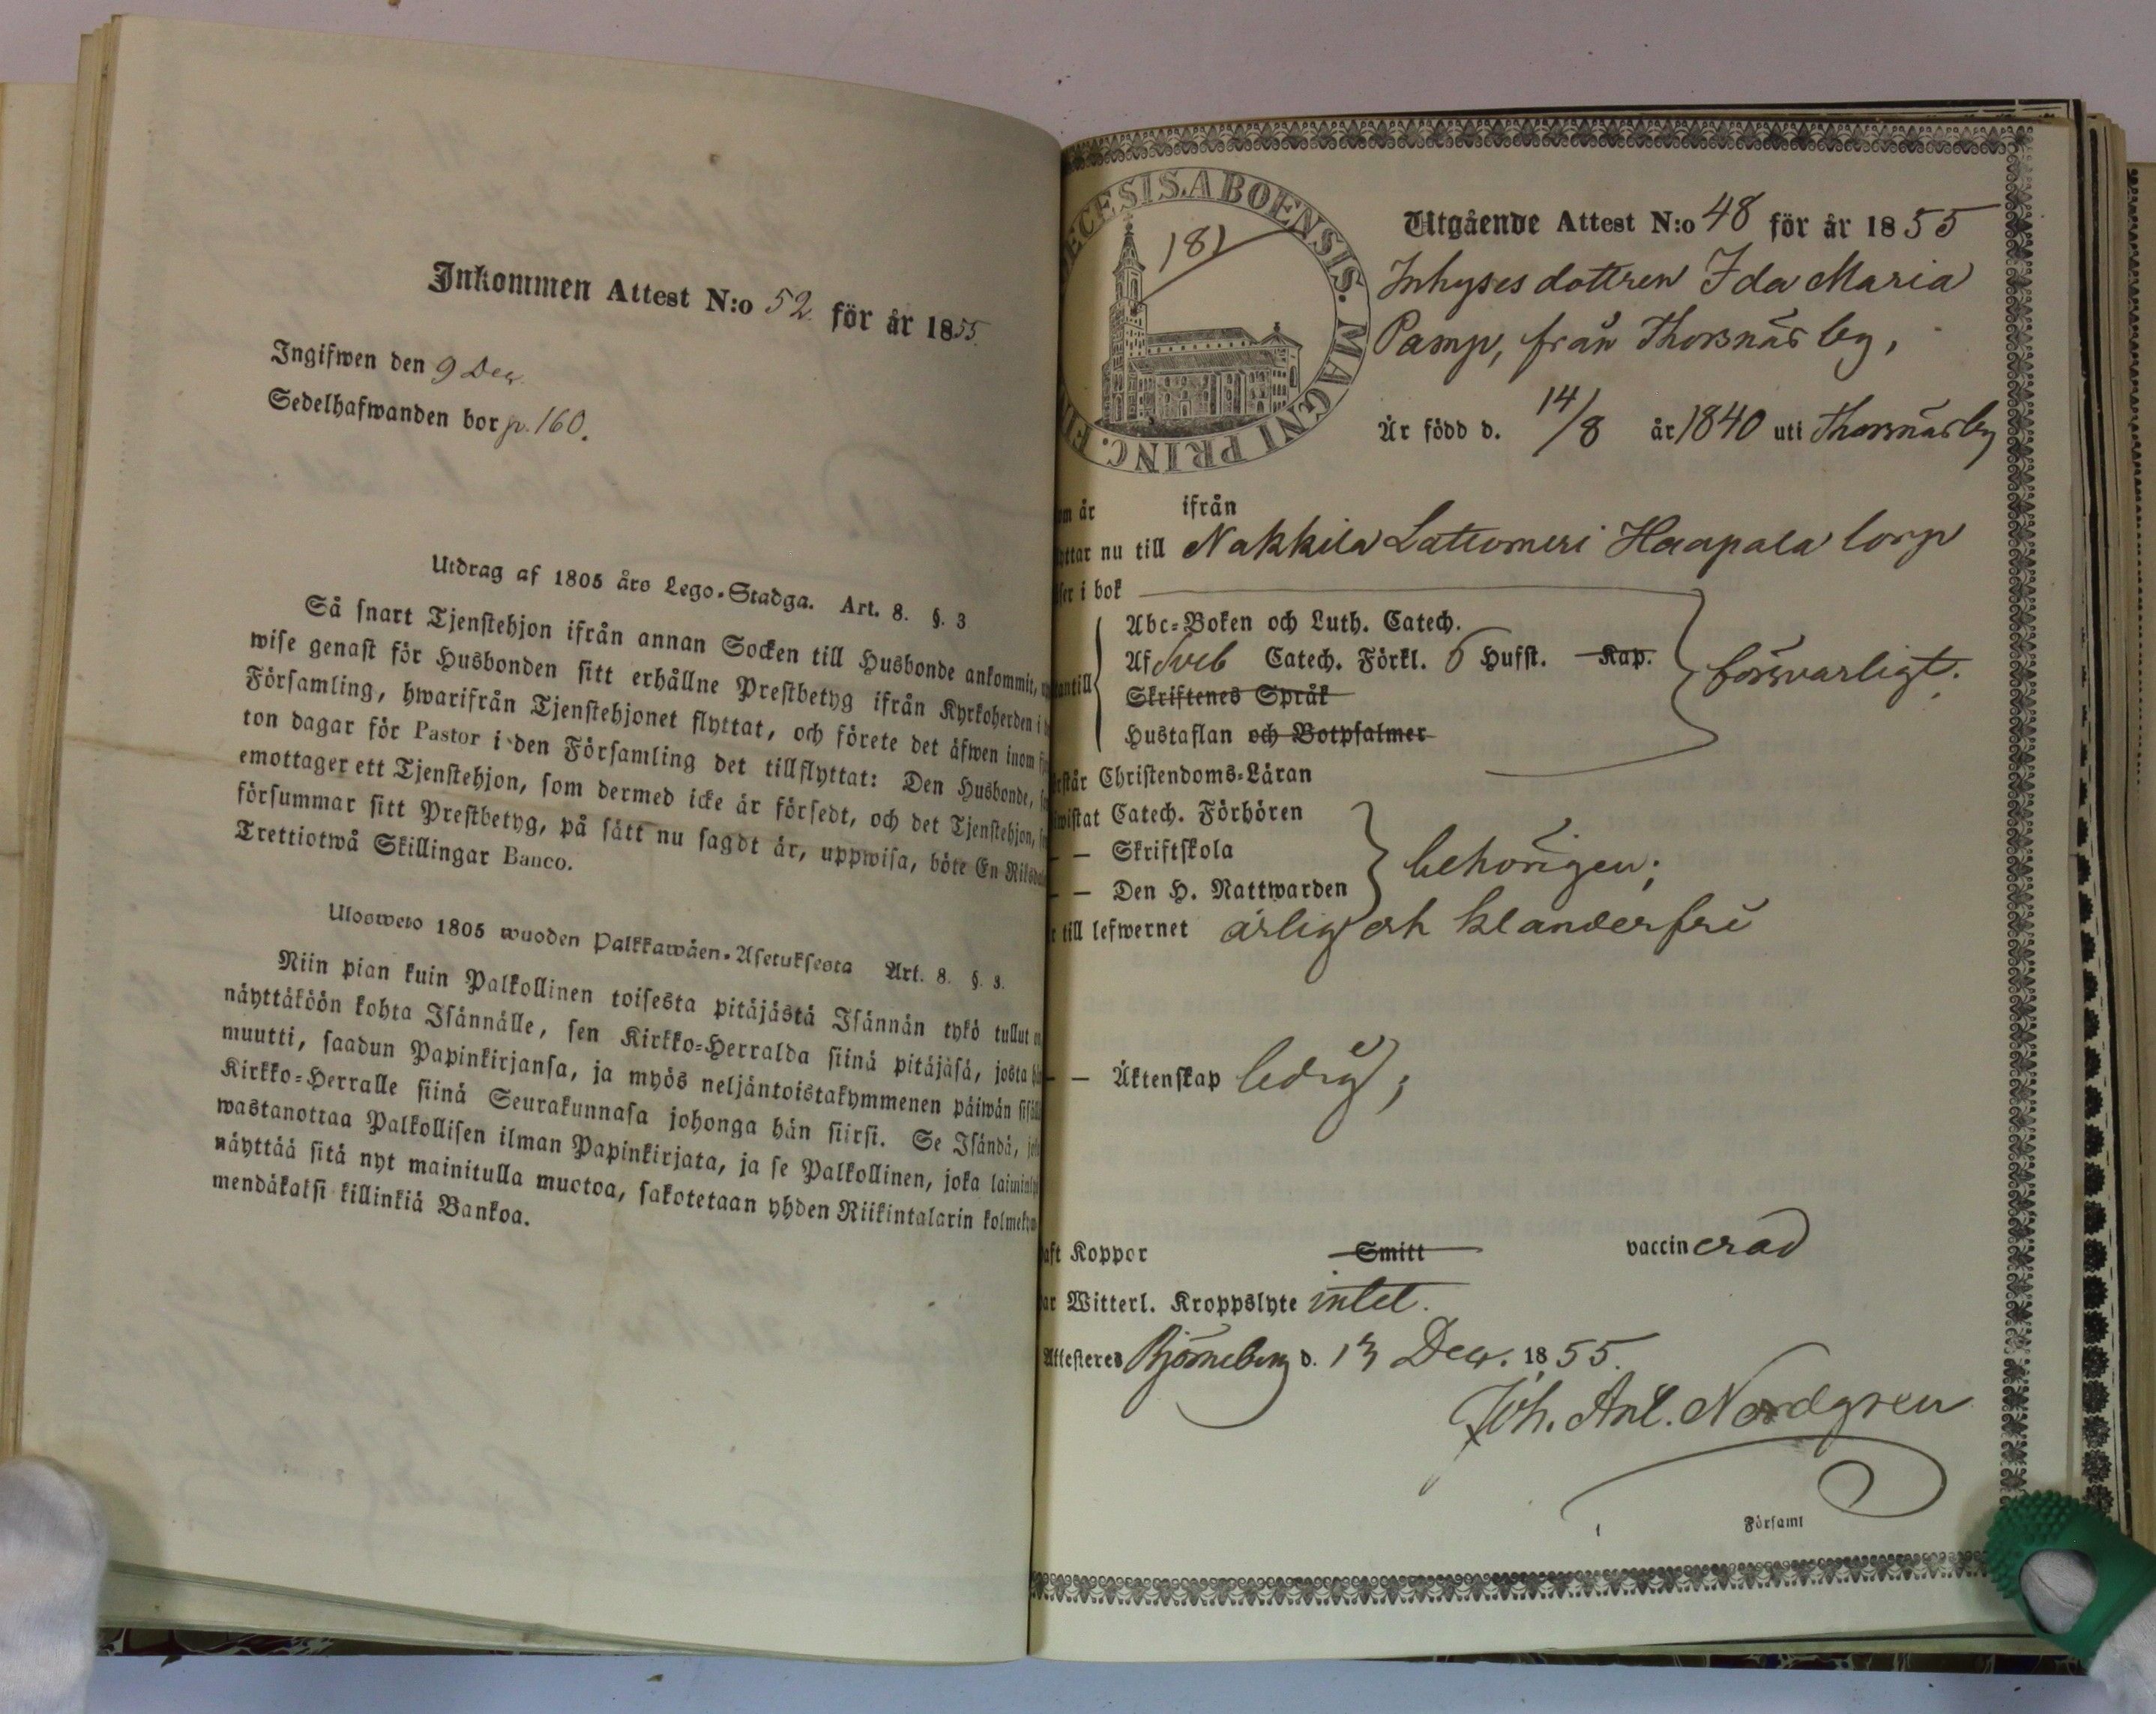 Inkommen Attest N:o 52. för år 1855.
Ingifwen den 9 Dec.
Sedelhafwanden bor p. 160.
Utdrag af 1805 års Lego-Stadga. Art. 8. §. 3
Så snart Tjenstehjon ifrån annan Socken till Husbonde ankommit,
wise genast för Husbonden sitt erhållne Prestbetyg ifrån Kyrkoherden i
Församling, hwarifrån Tjenstehjonet flyttat, och förete det äfwen inom
ton dagar för Pastor i den Församling det tillflyttat: Den Husbonde,
emottager ett Tjenstehjon, som dermed icke är försedt, och det Tjenstehjon,
försummar sitt Prestbetyg, på sätt nu sagdt är, uppwisa, böte En Riksd
Trettiotwå Skillingar Banco.
Uloswets 1805 wuoden Palkkawäen-Asetuksesta Art. 8. §. 3.
Niin pian kuin Palkollinen toisesta pitäjästä Isännän tykö tullut on
näyttäköön kohta Isännälle, sen Kirkko-Herralda siinä pitäjäsä, josta hän
muutti, saadun Papinkirjansa, ja myös neljäntoistakymmenen päiwän sisäll
Kirkko-Herralle siinä Seurakunnasa johonga hän siirsi. Se Isändä, jok
wastanottaa Palkollisen ilman Papinkirjata, ja se Palkollinen, joka laiminly
näyttää sitä nyt mainitulla muotoa, sakotetaan yhden Riikintalarin kolmeky
mendäkaksi killinkiä Bankoa.
ECESIS. ABOENSIS. MAGNI PRINC. FIN
181
Utgående Attest N:o 48 för år 1855
Inhyses dottren Ida Maria
Pamp, från Thorsnäs by,
Är född d. 14/8 år 1840 uti Thorsnäs by
om år ifrån
yttar nu till Nakkila Lattomeri Haapala torp
äser i bok
Abc-Boken och Luth. Catech.
Af Sveb Catech. Förkl. 6 Hufst. Kap.
antill försvarligt.
Skriftenes Språk
Hustaflan och Botpsalmer
rstår Christendoms-Läran
iwistat Catech. Förhören
— — Skriftskola behörigen;
— — Den H. Nattwarden
r till lefwernet ärlig och klanderfri
— — Äktenskap ledig;
aft Koppor Smitt vaccinerad
ar Witterl. Kroppslyte intet.
Attesteres Björneborg d. 13 Dec. 1855.
Joh. Ant. Nordgren
i Församl